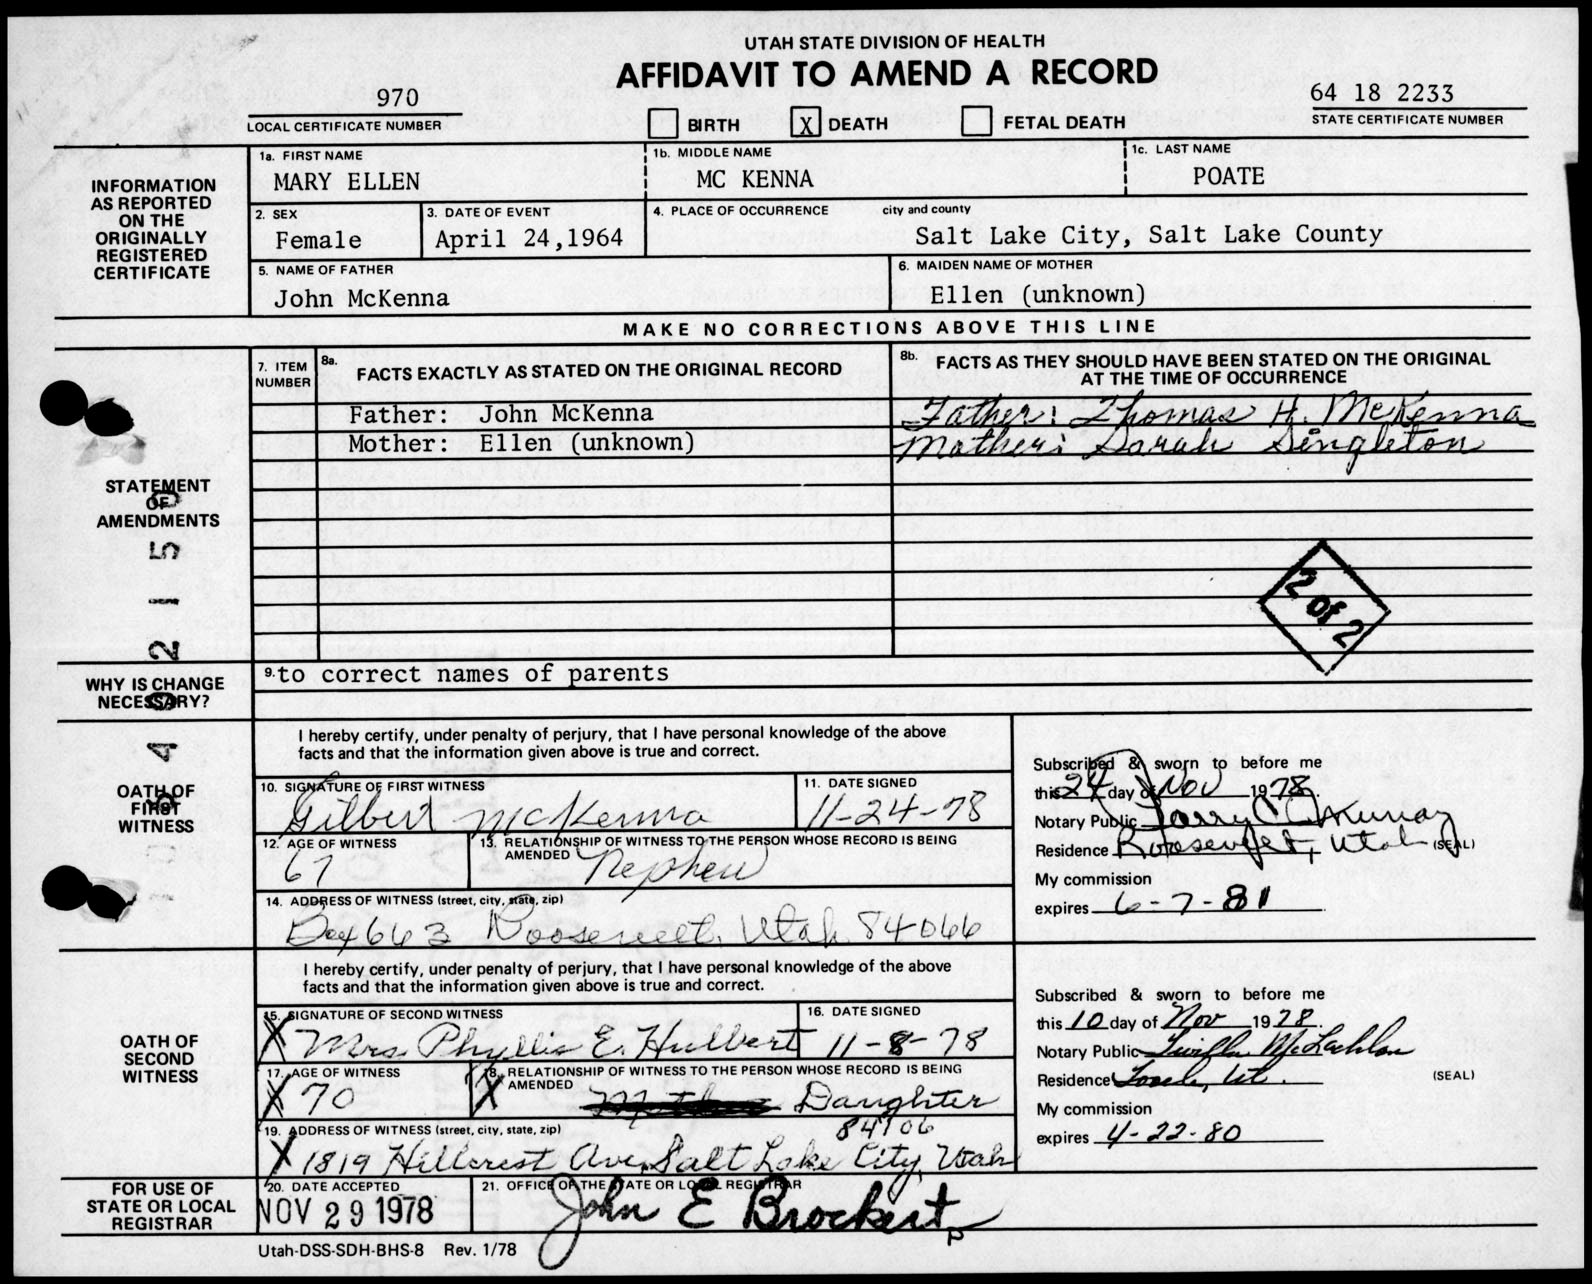 UTAH STATE DIVISION OF HEALTH
AFFIDAVIT TO AMEND A RECORD
970
LOCAL CERTIFICATE NUMBER
BIRTH X DEATH FETAL DEATH
64 18 2233
STATE CERTIFICATE NUMBER
INFORMATION AS REPORTED ON THE ORIGINALLY REGISTERED CERTIFICATE
1a. FIRST NAME
MARY ELLEN
1b. MIDDLE NAME
MC KENNA
1c. LAST NAME
POATE
2. SEX
Female
3. DATE OF EVENT
April 24,1964
4. PLACE OF OCCURRENCE city and county
Salt Lake City, Salt Lake County
5. NAME OF FATHER
John McKenna
6. MAIDEN NAME OF MOTHER
Ellen (unknown)
MAKE NO CORRECTIONS ABOVE THIS LINE
STATEMENT OF AMENDMENTS
7. ITEM NUMBER
8a. FACTS EXACTLY AS STATED ON THE ORIGINAL RECORD
8b. FACTS AS THEY SHOULD HAVE BEEN STATED ON THE ORIGINAL
AT THE TIME OF OCCURRENCE
Father: John McKenna
Father: Thomas H. McKenna
Mother: Ellen (unknown)
Mother: Sarah Singleton
2 of 2
WHY IS CHANGE NECESSARY?
9. to correct names of parents
OATH OF FIRST WITNESS
I hereby certify, under penalty of perjury, that I have personal knowledge of the above
facts and that the information given above is true and correct.
10. SIGNATURE OF FIRST WITNESS
Gilbert McKenna
11. DATE SIGNED
11-24-78
12. AGE OF WITNESS
67
13. RELATIONSHIP OF WITNESS TO THE PERSON WHOSE RECORD IS BEING
AMENDED Nephew
14. ADDRESS OF WITNESS (street, city, state, zip)
Box 663 Roosevelt, Utah 84066
Subscribed & sworn to before me
this 24 day of Nov 1978.
Notary Public Murray
Residence Roosevelt, Utah (SEAL)
My commission
expires 6-7-81
OATH OF SECOND WITNESS
I hereby certify, under penalty of perjury, that I have personal knowledge of the above
facts and that the information given above is true and correct.
15. SIGNATURE OF SECOND WITNESS
X Mrs. Phyllis E. Hulbert
16. DATE SIGNED
11-8-78
17. AGE OF WITNESS
X 70
18. RELATIONSHIP OF WITNESS TO THE PERSON WHOSE RECORD IS BEING
AMENDED
X Daughter
19. ADDRESS OF WITNESS (street, city, state, zip)
84106
X 1819 Hillcrest Ave, Salt Lake City, Utah
Subscribed & sworn to before me
this 10 day of Nov 1978.
Notary Public McLachlan
Residence Ut. (SEAL)
My commission
expires 4-22-80
FOR USE OF STATE OR LOCAL REGISTRAR
20. DATE ACCEPTED
NOV 29 1978
21. OFFICE OF THE STATE OR LOCAL REGISTRAR
John E Brockert
Utah-DSS-SDH-BHS-8 Rev. 1/78